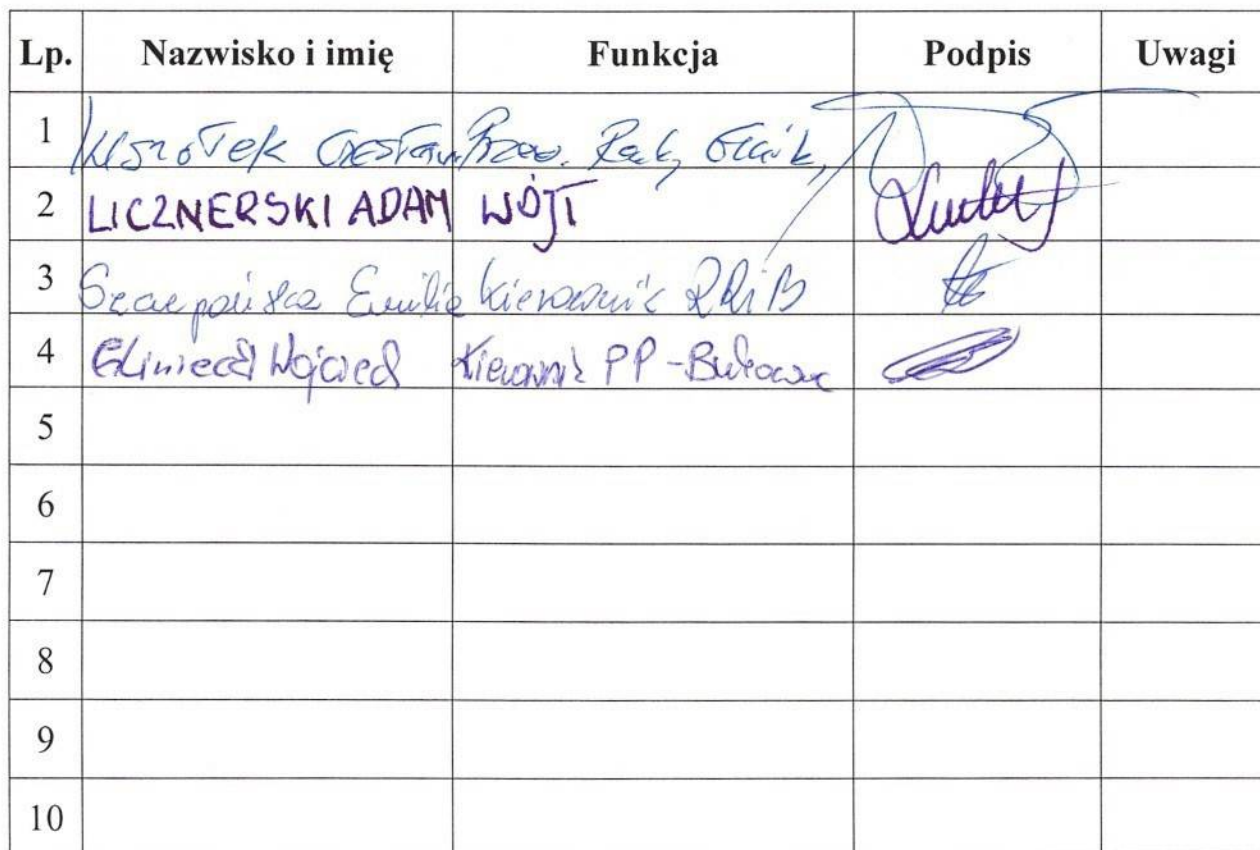 Lp. Nazwisko i imię Funkcja Podpis Uwagi
1 Czesław Przew. Rady
2 LICZNERSKI ADAM WÓJT
3 Szczepańska Emilia Kierownik RRiB
4 Gliniecki Wojciech Kierownik PP-Bukowiec
5
6
7
8
9
10